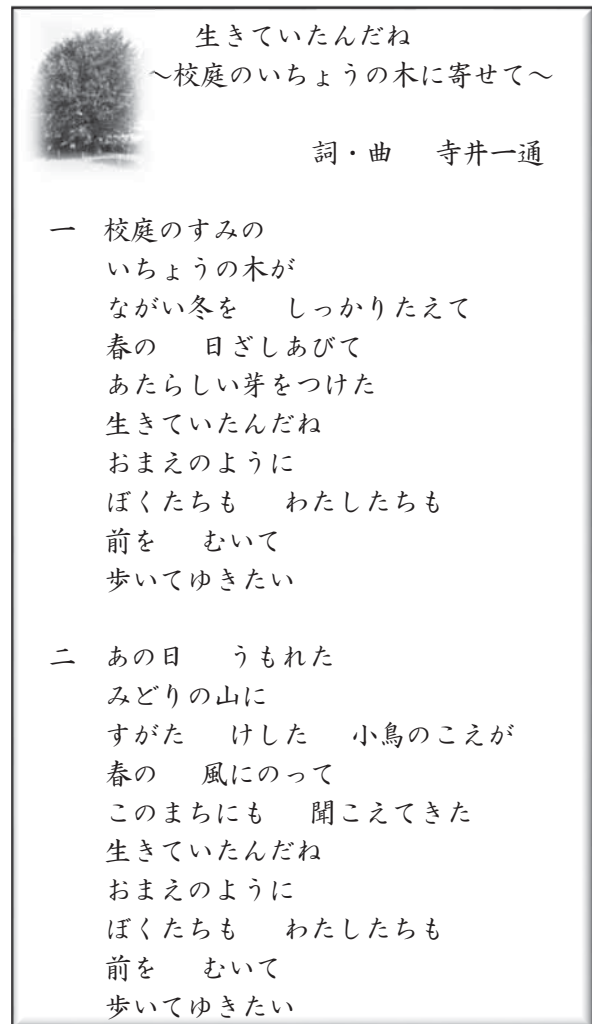 生きていたんだね
～校庭のいちょうの木に寄せて～
詞・曲　寺井一通
一　校庭のすみの
いちょうの木が
ながい冬を　しっかりたえて
春の　日ざしあびて
あたらしい芽をつけた
生きていたんだね
おまえのように
ぼくたちも　わたしたちも
前を　むいて
歩いてゆきたい
二　あの日　うもれた
みどりの山に
すがた　けした　小鳥のこえが
春の　風にのって
このまちにも　聞こえてきた
生きていたんだね
おまえのように
ぼくたちも　わたしたちも
前を　むいて
歩いてゆきたい